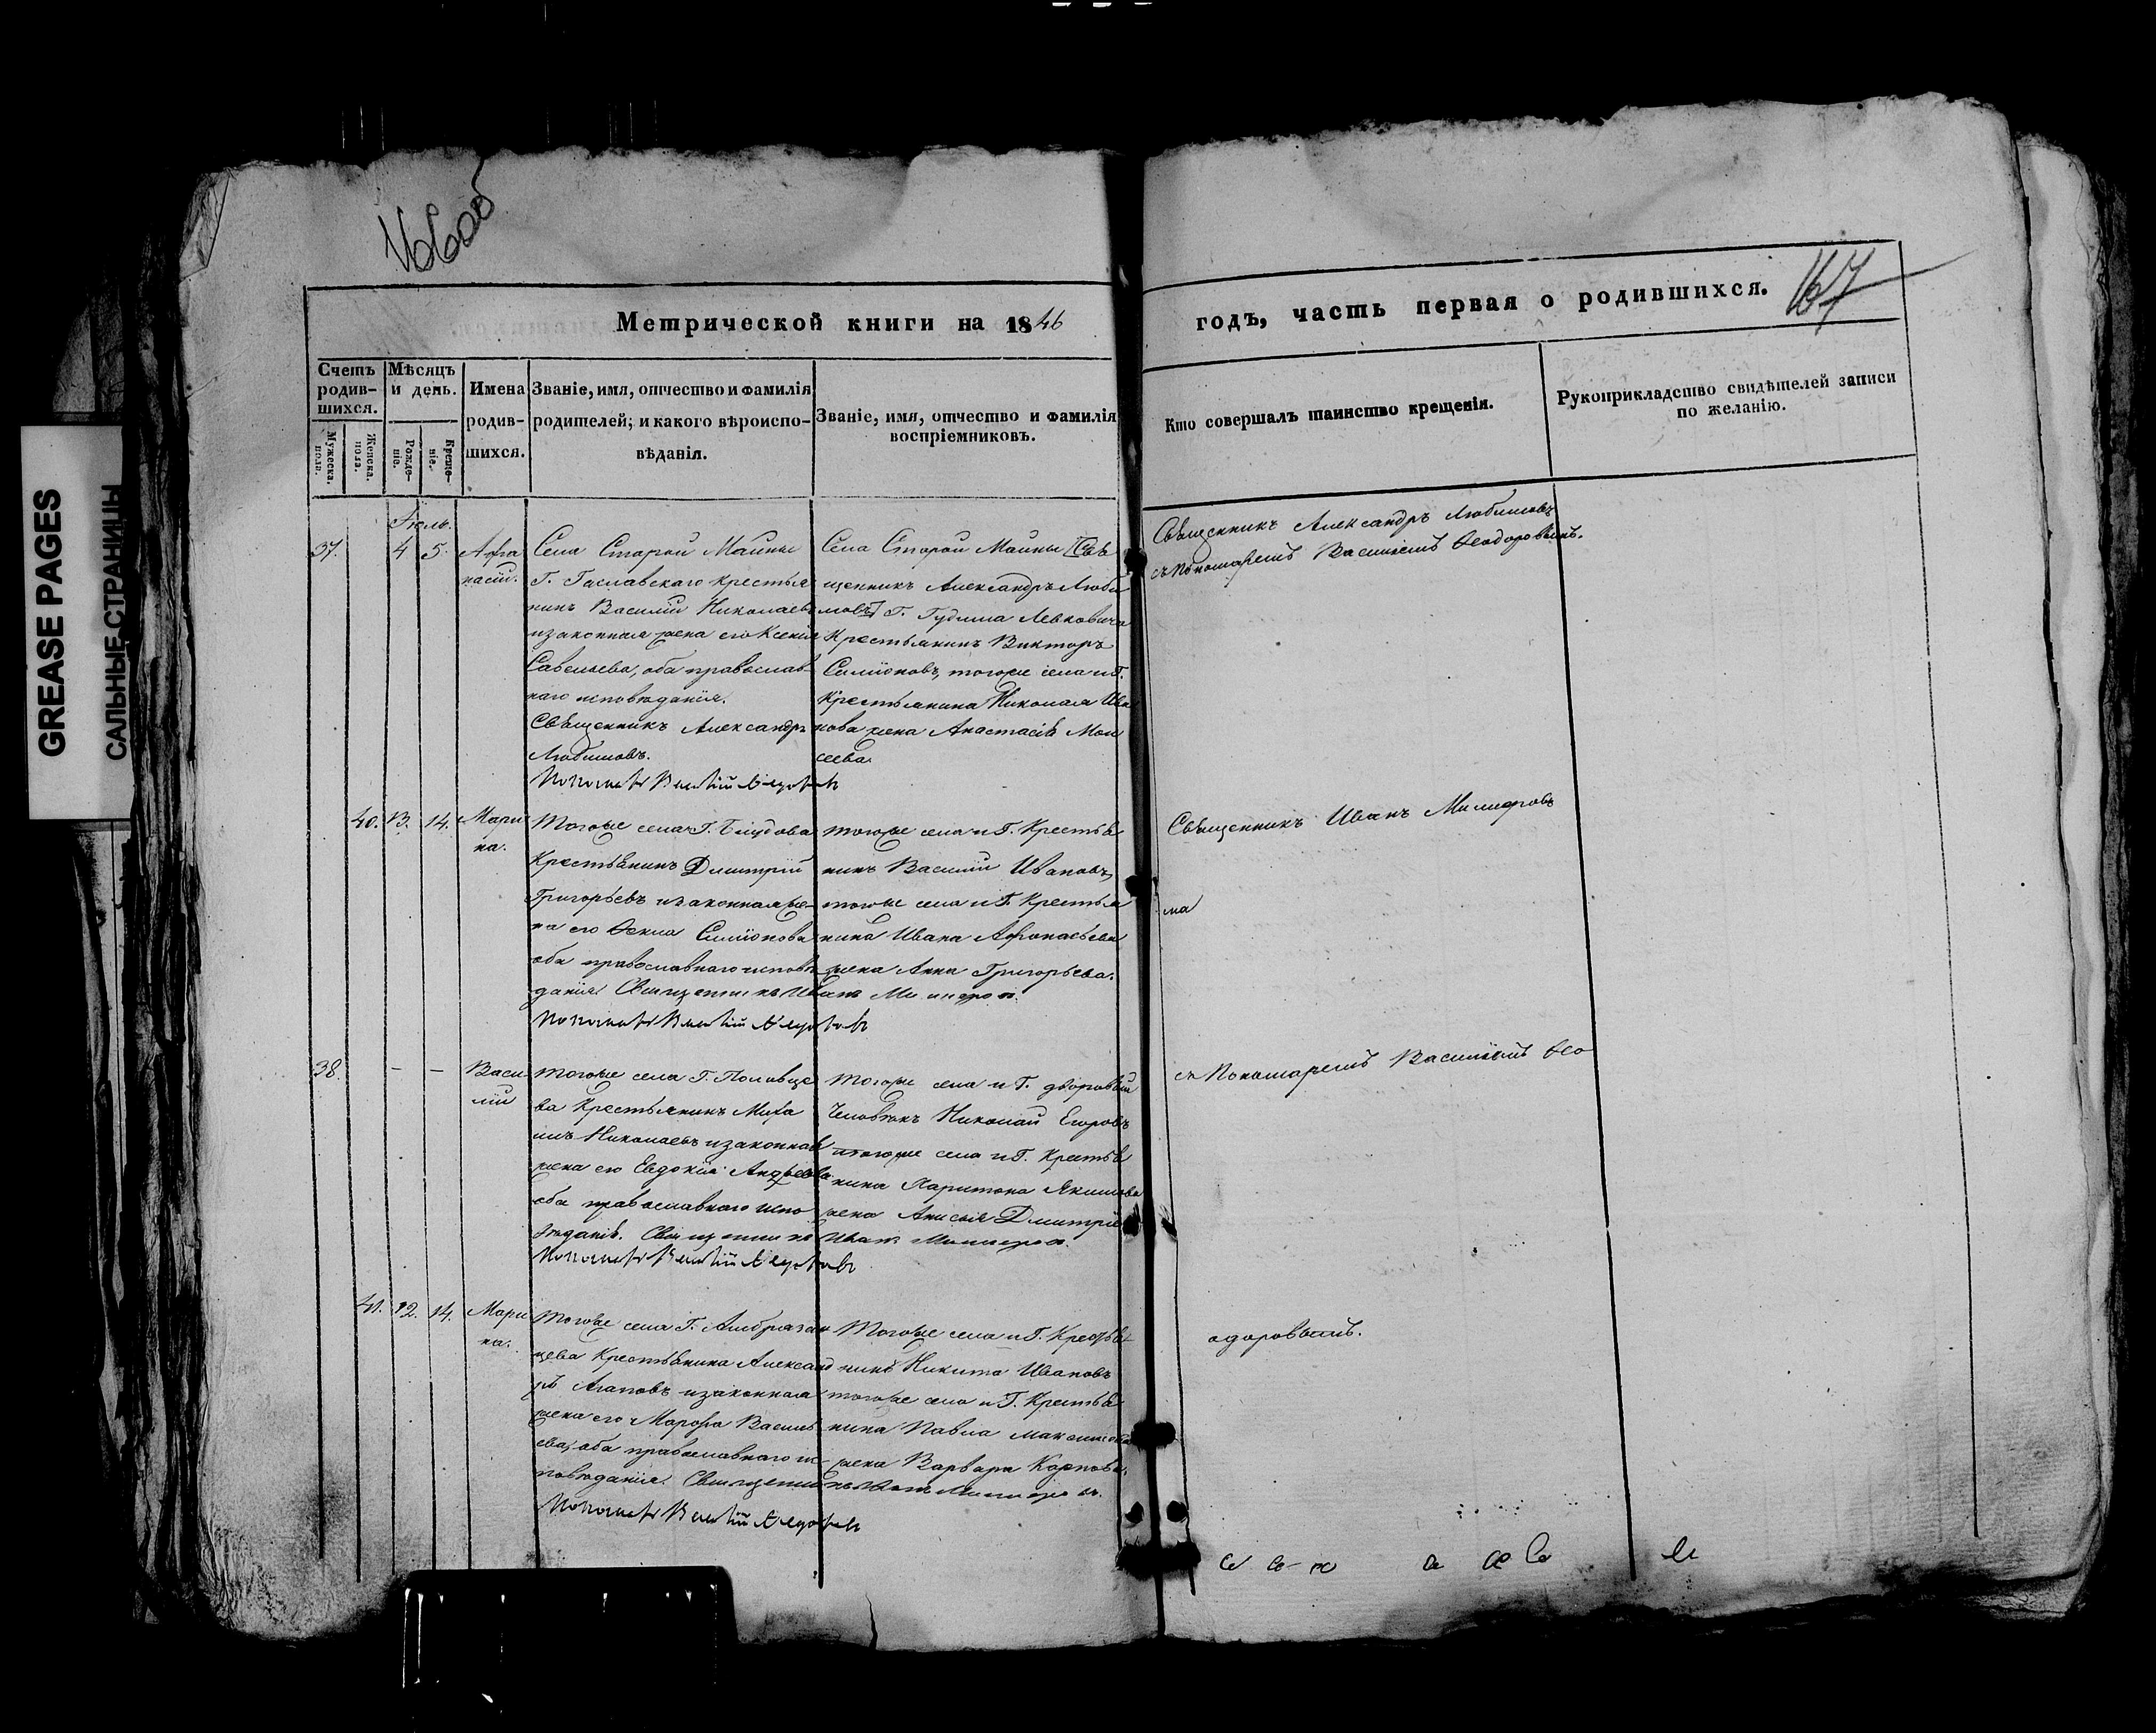 GREASE PAGES
САЛЬНЫЕ СТРАНИЦЫ
166об
167
Метрической книги на 1846
годъ, часть первая о родившихся.
Счетъ родив-шихся.
Мужеска. пола.
Женска. пола.
Мѣсяцъ и день.
Рожде-ніе.
Креще-ніе.
Имена родив-шихся.
Званіе, имя, отчество и фамилія
родителей; и какого вѣроиспо-
вѣданія.
Званіе, имя, отчество и фамилія
воспріемниковъ.
Кто совершалъ таинство крещенія.
Рукоприкладство свидѣтелей записи
по желанію.
Іюль.
37. 4 5. Афа
насій.
Села Старой Майны
Г. крестья
нинъ Василій Николаевъ
изаконная жена его Ксенія
Савельева, оба православ
наго исповѣданія.
Священникъ Александръ
Любимовъ.
Пономарь Василій Ѳедоровъ
Села Старой Майны Свя
щенникъ Александръ Люби
мовъ Г. Левковича
Крестьянинъ Викторъ
Симіоновъ, тогоже села и Г.
Крестьянина Николая Ива
нова жена Анастасія Мои
сеева
Священникъ Александръ Любимовъ
съ Пономаремъ Василіемъ Ѳеодоровымъ.
40. 13. 14. Мари
на.
Тогоже села Г.
Крестьянинъ Дмитрій
Григорьевъ изаконная же-
на его Ѳекла Симіонова
оба православнаго исповѣ
данія. Священникъ Иванъ
Пономарь Василій Ѳедоровъ
тогоже села и Г. Крестья
нинъ Василій Ивановъ,
тогоже села и Г. Крестья
нина Ивана Афонасьева
жена Анна Григорьева.
Священникъ Иванъ
38. - - Васи
лій
Тогоже села Г. Половце
ва Крестьянинъ Миха
илъ Николаевъ изаконная
жена его Евдокія Андреева
оба православнаго испо
вѣданія. Священникъ Иванъ
Пономарь Василій Ѳедоровъ
Тогоже села и Г. дворовый
Человѣкъ Николай Егоровъ
тогоже села и Г. Крестья
нина Харитона Якимова
жена Анисья Дмитріе
съ Пономаремъ Василіемъ Ѳео
41. 12. 14. Мари
на.
Тогоже села Г. Амбразан
цева Крестьянина Александ
ръ Агаповъ изаконная
жена его Марфа Василь
ева, оба православнаго ис-
повѣданія. Священникъ Иванъ
Пономарь Василій Ѳедоровъ
Тогоже села и Г. Крестья
нинъ Никита Ивановъ
тогоже села и Г. Крестья
нина Павла Максимова
жена Варвара Карпова.
одоровымъ.